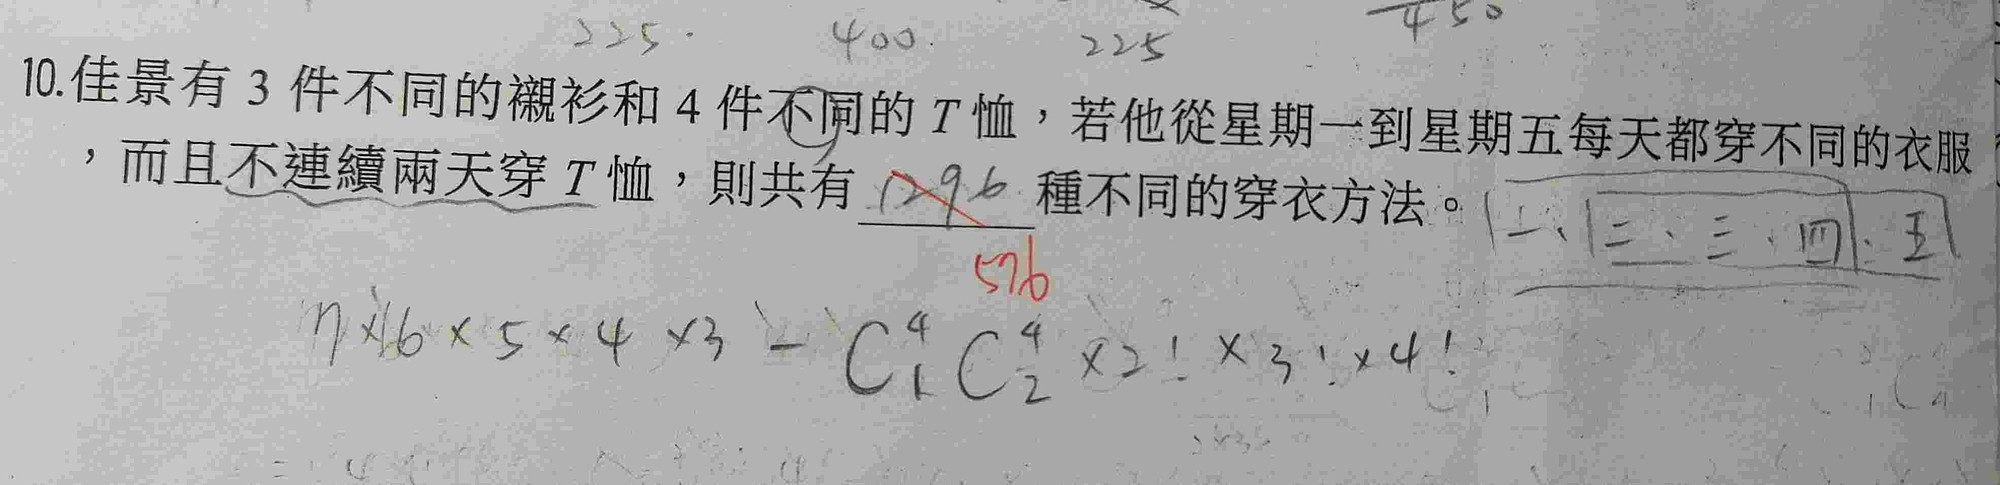 225. 400. 225 450
10.佳景有 3 件不同的襯衫和 4 件不同的 T 恤，若他從星期一到星期五每天都穿不同的衣服
，而且不連續兩天穿 T 恤，則共有 1296 種不同的穿衣方法。 一、二、三、四、五
576
7×6×5×4×3 - C⁴₁ C⁴₂ ×2! ×3! ×4!